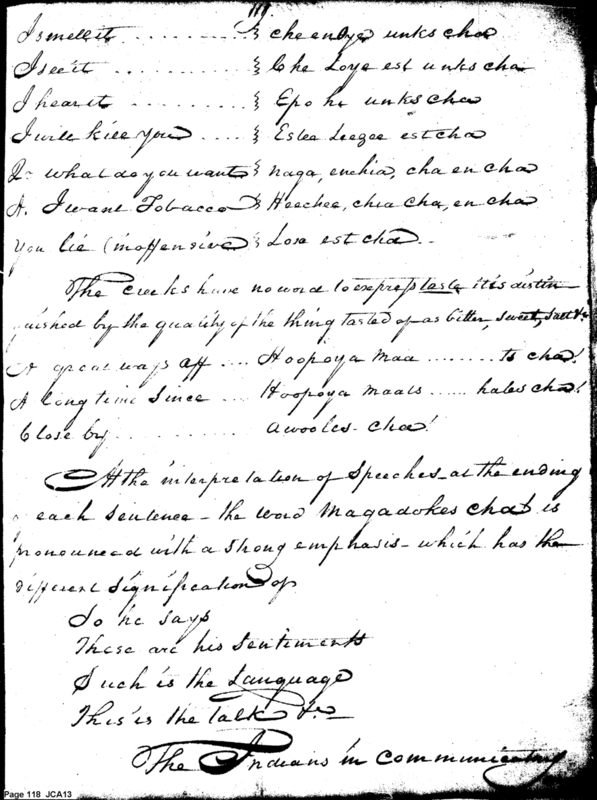 111.
I smell it .......... } cheenwye unks cha
I see it .......... } Che Loye est unks cha
I hear it .......... } Epo he unks cha
I will kill you ..... } Estee Leegee est cha
Q. what do you want } naga, enchia, cha en cha
A. I want Tobacco } Heechee, chia cha, en cha
You lie (inoffensive } Losa est cha ..
The creeks have no word to express taste it is distin
guished by the quality of the thing tasted of as bitter, sweet, salt &c
A great ways off .... Hoopoya maa ........ ts cha!
A long time since .... Hoopoya maats ...... hales cha!
Close by .......... awooles - cha!
At the interpretation of Speeches - at the ending
of each Sentence - the word Magadokes cha! is
pronounced with a strong emphasis - which has the
different signification of
So he says
These are his Sentiments
Such is the Language
This is the talk &c
The Indians in communicating
Page 118 JCA13